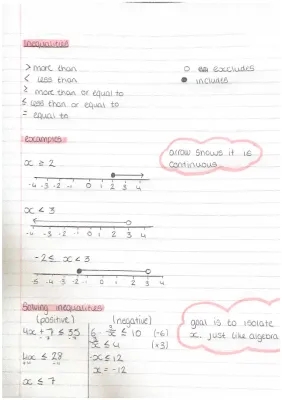 Inequalities
> more than
○ excludes
< less than
● includes
≥ more than or equal to
≤ less than or equal to
= equal to
examples
arrow shows it is
continuous
x ≥ 2
-4 -3 -2 -1 0 1 2 3 4
x < 3
-4 -3 -2 -1 0 1 2 3 4
-2 ≤ x < 3
-4 -3 -2 -1 0 1 2 3 4
Solving inequalities
(positive)
(negative)
4x + 7 ≤ 35
-7 -7
4x ≤ 28
x ≤ 7
≤ 10 (-6)
≤ 4 (×3)
-x ≤ 12
x = -12
goal is to isolate
x. just like algebra